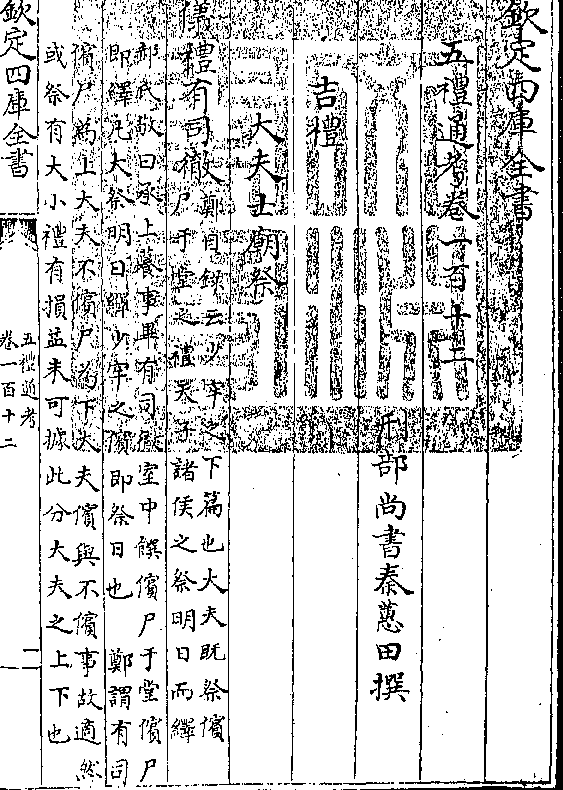 欽定四庫全書
五禮通考卷一百十二
刑部尚書秦蕙田撰
吉禮
大夫士廟祭
儀禮有司徹
鄭目録云少牢之下篇也大夫既祭儐
尸于堂之禮天子諸侯之祭明日而繹
郝氏敬曰承上養事畢有司徹室中饌儐尸于堂儐尸
即繹凡大祭明日繹少牢之儐即祭日也 鄭謂有司
儐尸為上大夫不儐尸為下大夫儐與不儐事故適然
或祭有大小禮有損益未可據此分大夫之上下也
欽定四庫全書
五禮通考
卷一百十二
一